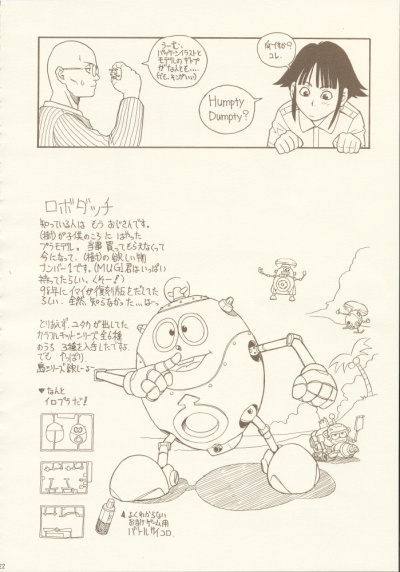 うーむ、
パッケージイラストと
モデルのギャップ
がなんとも……
何ですか?
コレ。
Humpty
Dumpty?
ロボダッチ
知っている人は もう おじさんです。
(樹)が子供のころに はやった
プラモデル。当時 買ってもらえなくって
今になって、(樹)の欲しい物
ナンバー1です。(MUGI君はいっぱい
持ってたらしい。くそー!)
98年に イマイが復刻版をだしてた
らしい、全然、知らなかった…はっ
とりあえず、ユタカが出してた
カラフルキットシリーズ全6種
のうち 3種を入手したですよ
でも やっぱり、
島シリーズ欲しーよー
♥なんと
イロプラだ!
よくわからない
おまけゲーム用
バトルサイコロ
22